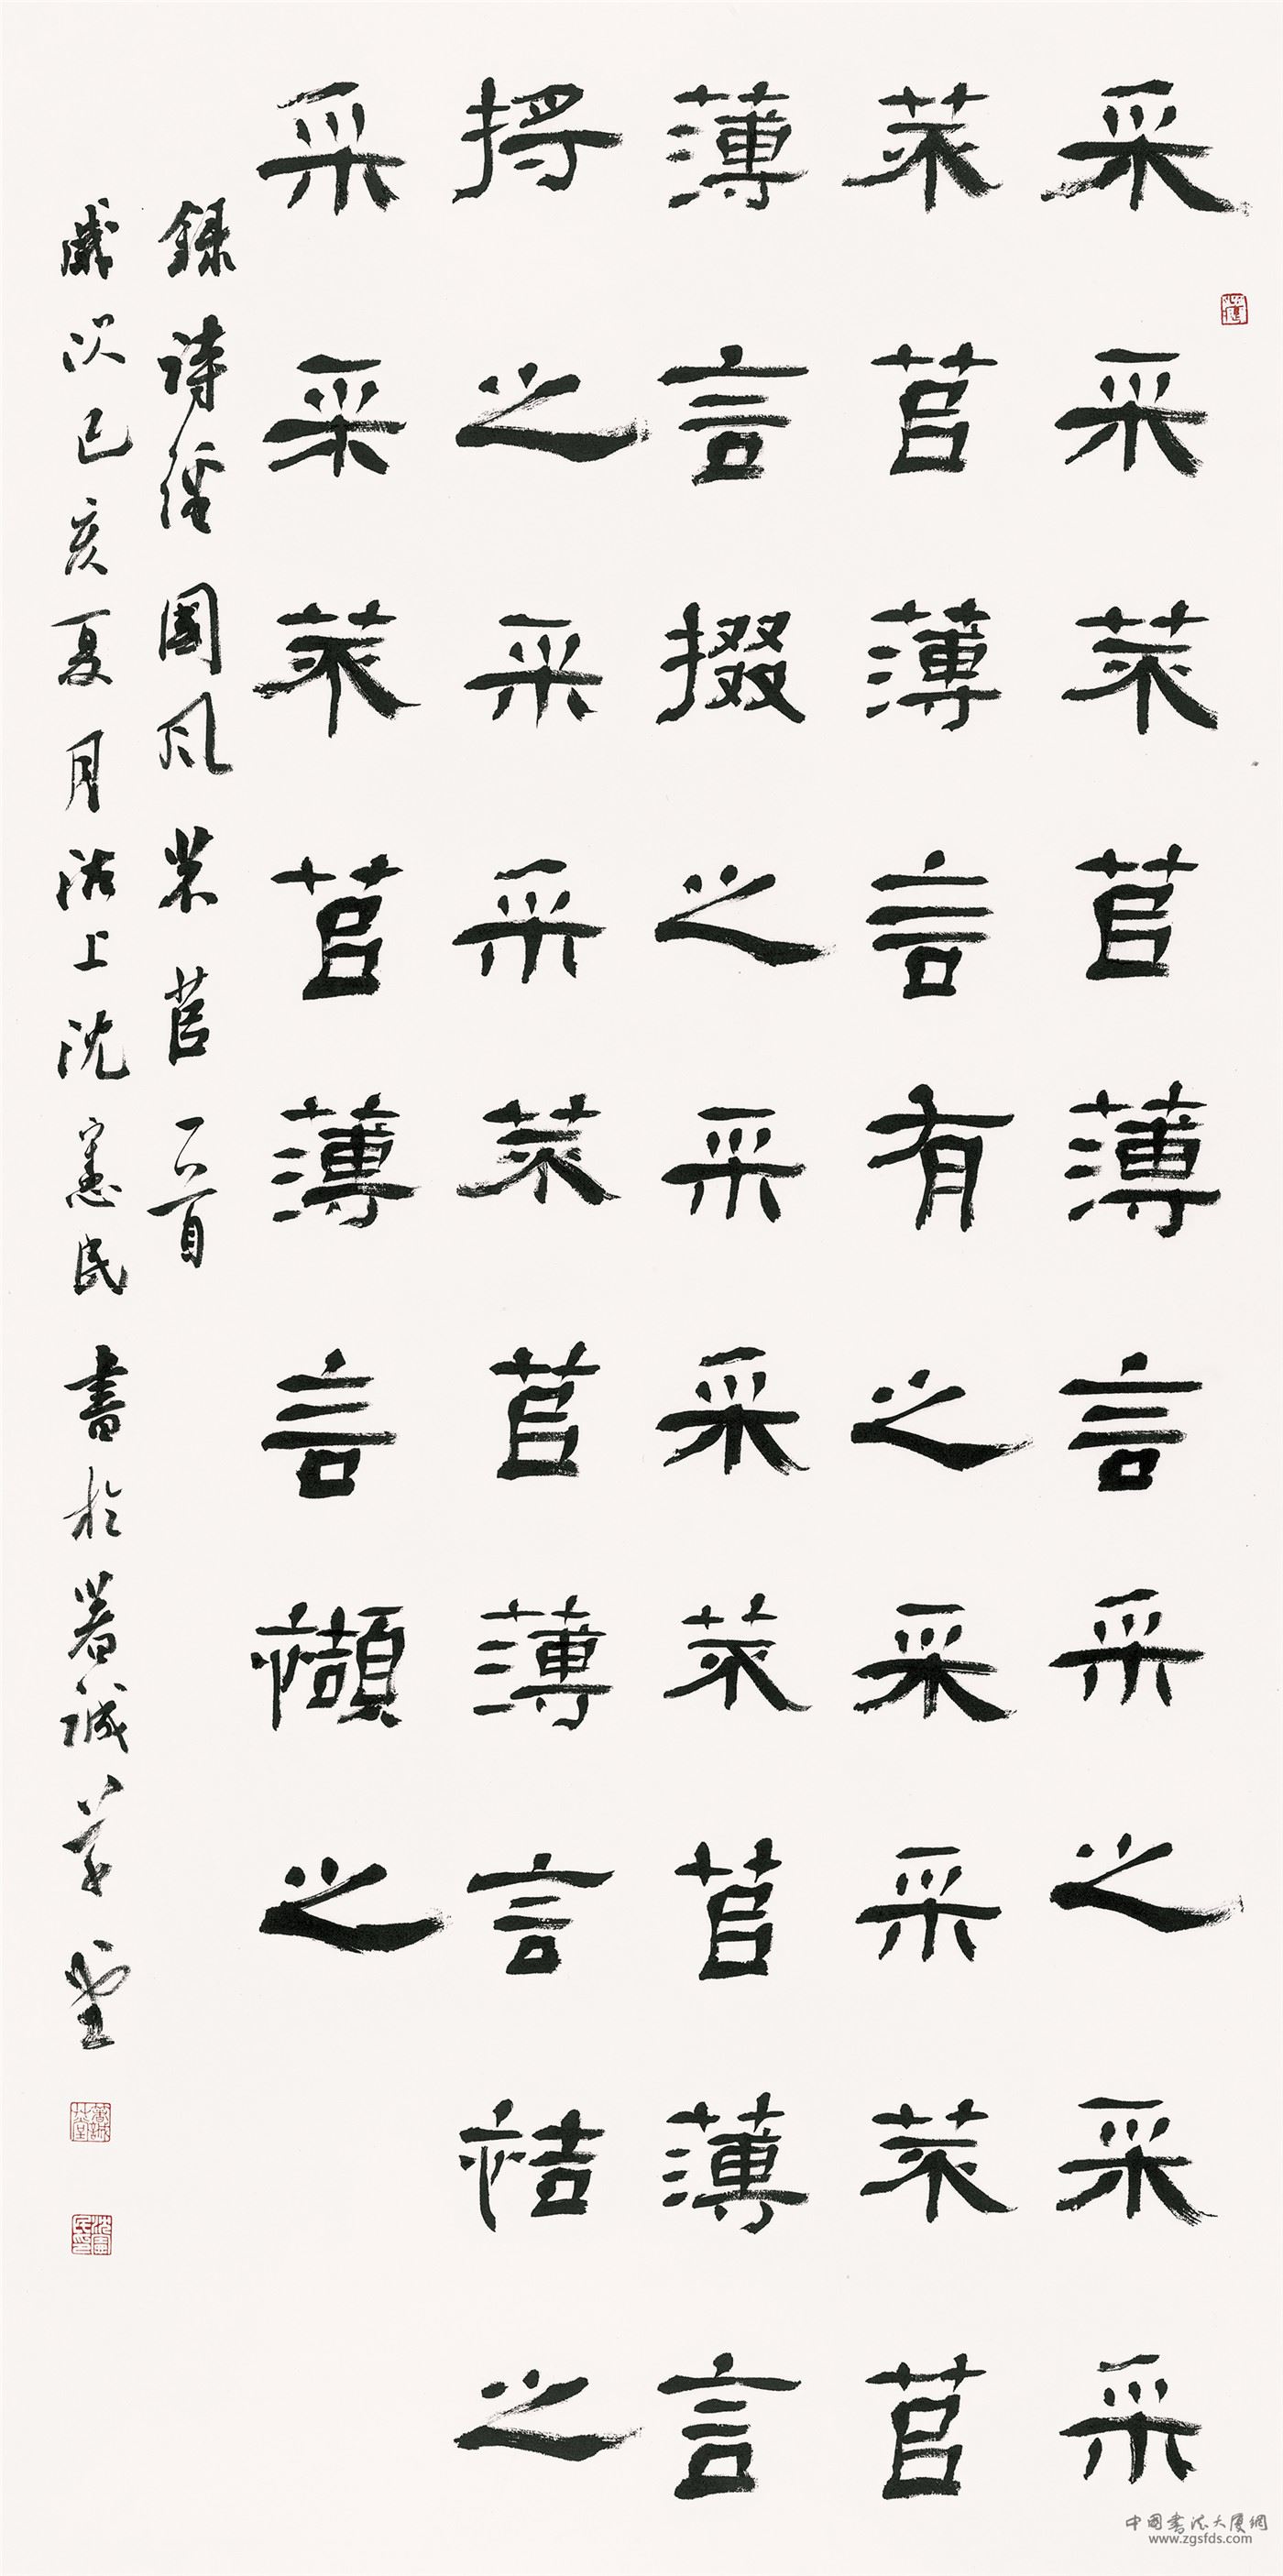 采采芣苢薄言采之采采
芣苢薄言有之采采芣苢
薄言掇之采采芣苢薄言
捋之采采芣苢薄言袺之
采采芣苢薄言襭之
錄詩經國風芣苢一首
歲次己亥夏月沽上沈憲民書於著誠草堂
中國書法大厦網
www.zgsfds.com